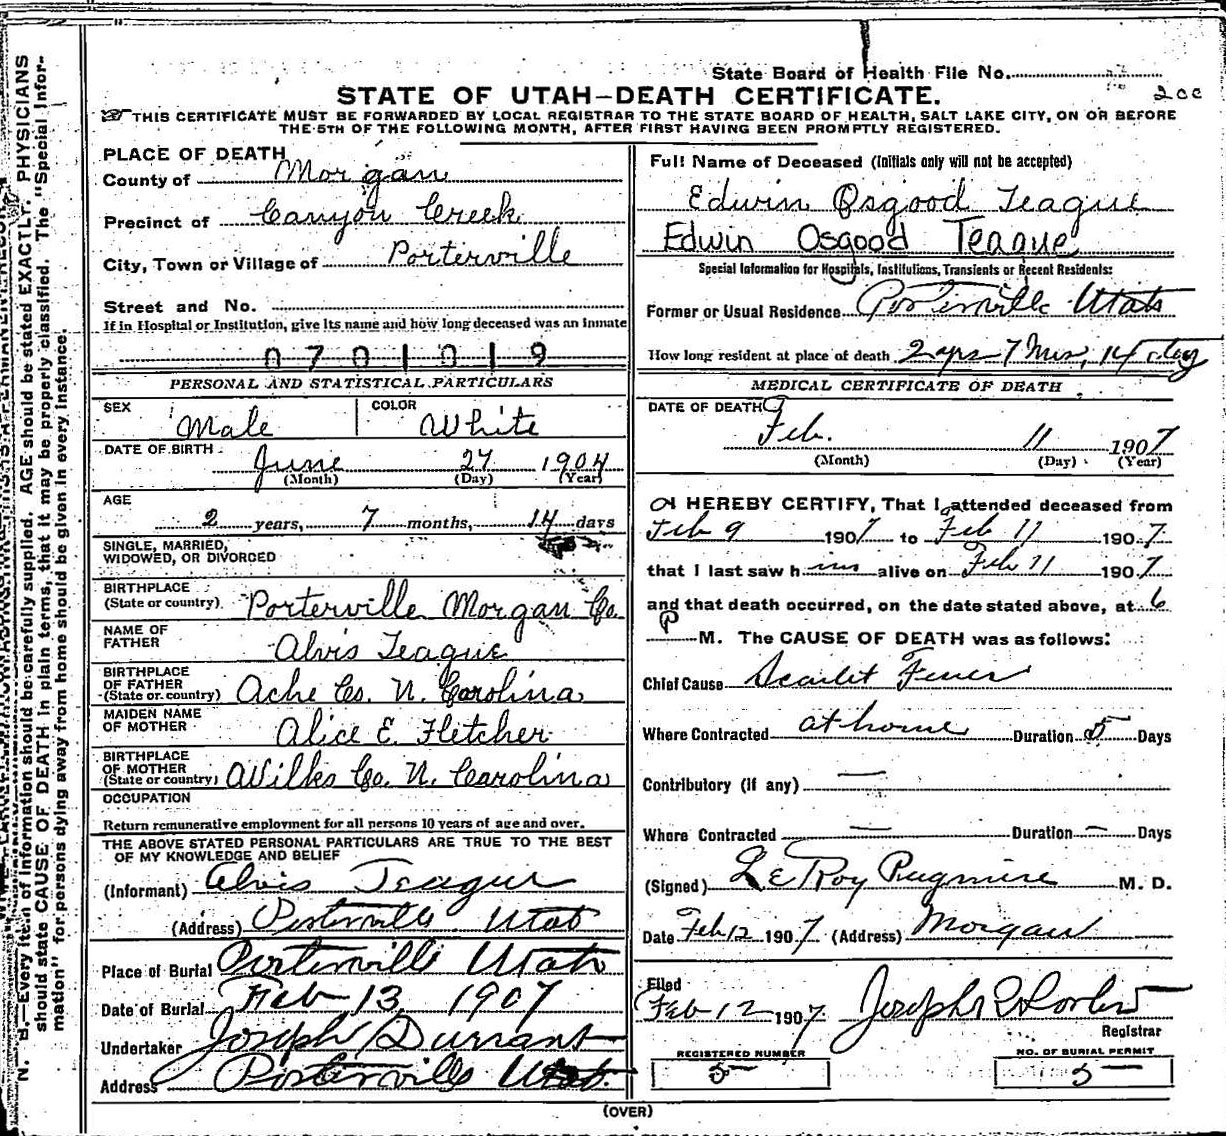 State Board of Health File No.
200
STATE OF UTAH—DEATH CERTIFICATE.
THIS CERTIFICATE MUST BE FORWARDED BY LOCAL REGISTRAR TO THE STATE BOARD OF HEALTH, SALT LAKE CITY, ON OR BEFORE
THE 5TH OF THE FOLLOWING MONTH, AFTER FIRST HAVING BEEN PROMPTLY REGISTERED.
PLACE OF DEATH
County of Morgan
Precinct of Canyon Creek
City, Town or Village of Porterville
Street and No.
If in Hospital or Institution, give its name and how long deceased was an inmate
0701019
PERSONAL AND STATISTICAL PARTICULARS
SEX Male COLOR White
DATE OF BIRTH June 27 1904
(Month) (Day) (Year)
AGE
2 years, 7 months, 14 days
SINGLE, MARRIED,
WIDOWED, OR DIVORCED
BIRTHPLACE
(State or country) Porterville Morgan Co.
NAME OF
FATHER Alvis Teague
BIRTHPLACE
OF FATHER
(State or country) Ache Co. N. Carolina
MAIDEN NAME
OF MOTHER Alice E. Fletcher
BIRTHPLACE
OF MOTHER
(State or country) Wilks Co. N. Carolina
OCCUPATION
Return remunerative employment for all persons 10 years of age and over.
THE ABOVE STATED PERSONAL PARTICULARS ARE TRUE TO THE BEST
OF MY KNOWLEDGE AND BELIEF
(Informant) Alvis Teague
(Address) Porterville Utah
Place of Burial Porterville Utah
Date of Burial Feb 13 1907
Undertaker Joseph Durrant
Address Porterville Utah
Full Name of Deceased (Initials only will not be accepted)
Edwin Osgood Teague
Edwin Osgood Teague
Special Information for Hospitals, Institutions, Transients or Recent Residents:
Former or Usual Residence Porterville Utah
How long resident at place of death 2 yrs 7 Mos, 14 day
MEDICAL CERTIFICATE OF DEATH
DATE OF DEATH
Feb. 11 1907
(Month) (Day) (Year)
I HEREBY CERTIFY, That I attended deceased from
Feb 9 1907 to Feb 11 1907
that I last saw h im alive on Feb 11 1907
and that death occurred, on the date stated above, at 6
P M. The CAUSE OF DEATH was as follows:
Chief Cause Scarlet Fever
Where Contracted at home Duration 5 Days
Contributory (if any) —
Where Contracted — Duration — Days
(Signed) LeRoy Pugmire M. D.
Date Feb 12 1907 (Address) Morgan
Filed
Feb 12 1907 Joseph R
Registrar
REGISTERED NUMBER NO. OF BURIAL PERMIT
5 5
(OVER)
N. B.—Every item of information should be carefully supplied. AGE should be stated EXACTLY. PHYSICIANS
should state CAUSE OF DEATH in plain terms, that it may be properly classified. The "Special Infor-
mation" for persons dying away from home should be given in every instance.